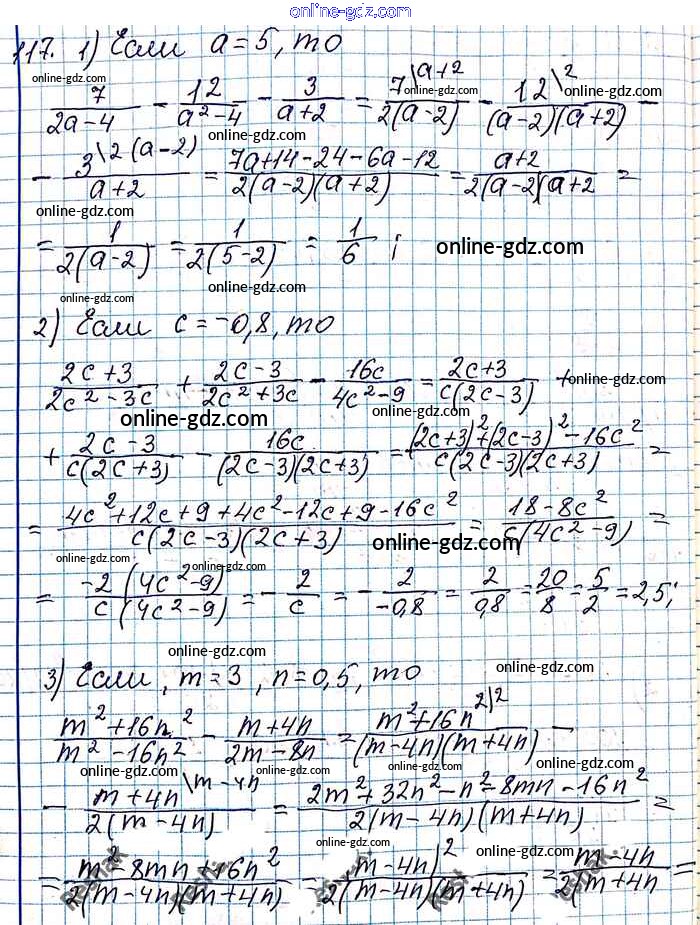 online-gdz.com
117. 1) Если a = 5, то
online-gdz.com
7/(2a-4) - 12/(a²-4) - 3/(a+2) = 7\a+2/(2(a-2)) - 12\2/((a-2)(a+2)) -
online-gdz.com
- 3\2(a-2)/(a+2) = (7a+14-24-6a-12)/(2(a-2)(a+2)) = (a+2)/(2(a-2)(a+2 =
online-gdz.com online-gdz.com
= 1/(2(a-2)) = 1/(2(5-2)) = 1/6 ; online-gdz.com
online-gdz.com online-gdz.com
2) Если c = -0,8, то online-gdz.com
(2c+3)/(2c²-3c) + (2c-3)/(2c²+3c) - 16c/(4c²-9) = (2c+3)/(c(2c-3)) + online-gdz.com
online-gdz.com online-gdz.com
+ (2c-3)/(c(2c+3)) - 16c/((2c-3)(2c+3)) = ((2c+3)²+(2c-3)²-16c²)/(c(2c-3)(2c+3)) =
= (4c²+12c+9+4c²-12c+9-16c²)/(c(2c-3)(2c+3)) = (18-8c²)/(c(4c²-9)) =
online-gdz.com online-gdz.com online-gdz.com
= -2(4c²-9)/(c(4c²-9)) = -2/c = -2/-0,8 = 2/0,8 = 20/8 = 5/2 = 2,5;
online-gdz.com online-gdz.com
3) Если, m = 3, n = 0,5, то online-gdz.com
(m²+16n²)/(m²-16n²) - (m+4n)/(2m-8n) = (m²+16n²\2)/((m-4n)(m+4n)) -
online-gdz.com online-gdz.com online-gdz.com
- (m+4n\m-4n)/(2(m-4n)) = (2m²+32n²-n²-8mn-16n²)/(2(m-4n)(m+4n)) =
= (m²-8mn+16n²)/(2(m-4n)(m+4n)) = (m-4n)²/(2(m-4n)(m+4n)) = (m-4n)/(2(m+4n =